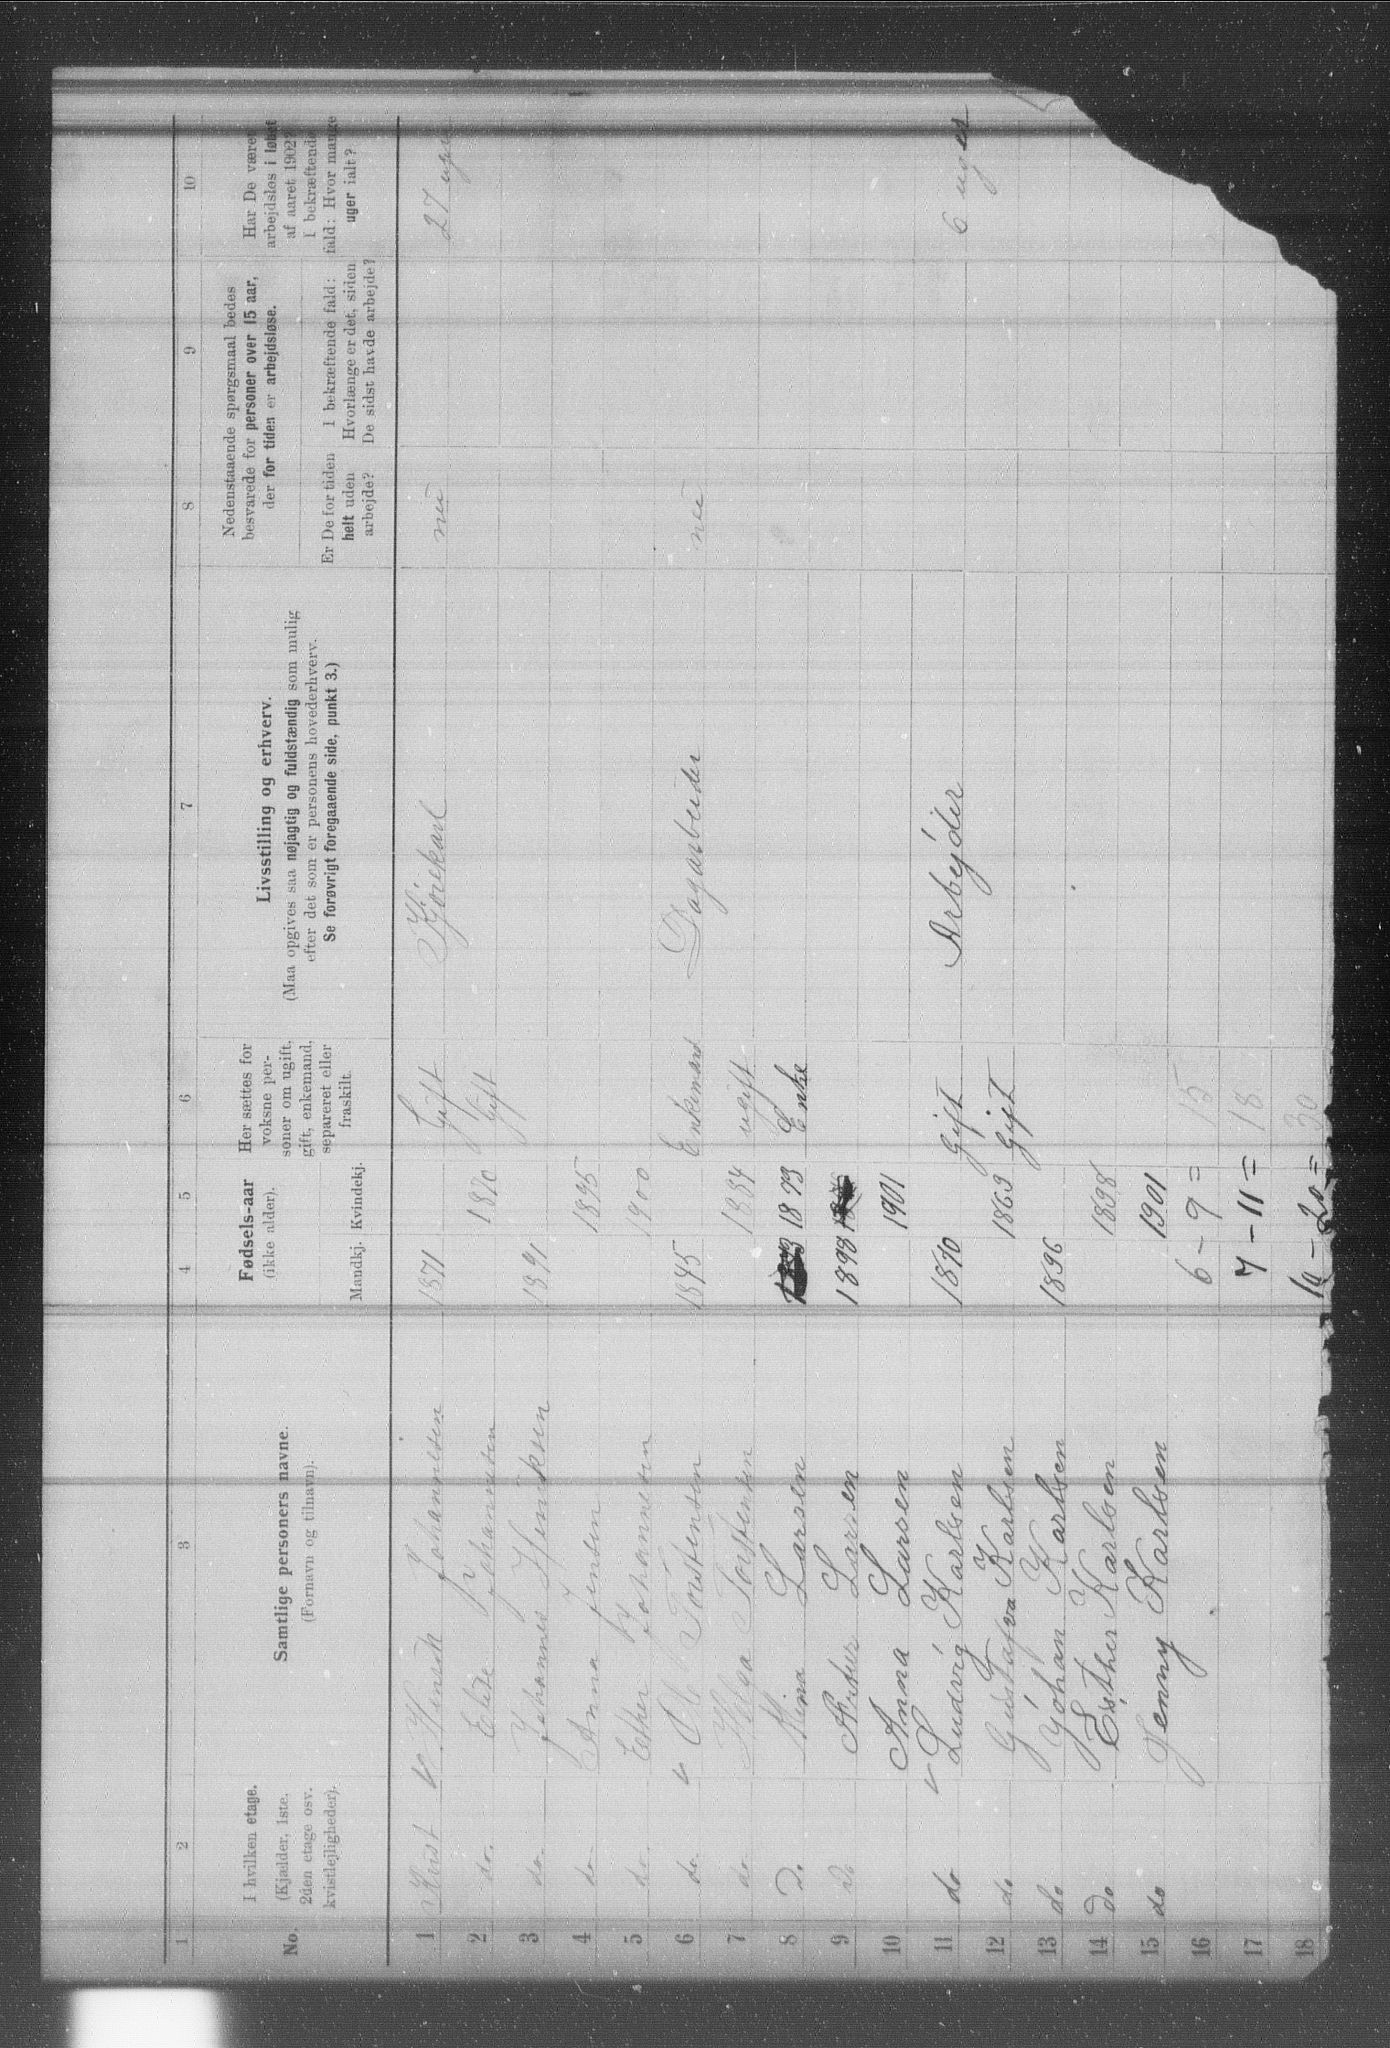 1 2 3 4 5 6 7 8 9 10
No.
I hvilken etage.
(Kjælder, 1ste,
2den etage osv.
kvistlejligheder).
Samtlige personers navne.
(Fornavn og tilnavn).
Fødsels-aar
(ikke alder).
Mandkj. Kvindekj.
Her sættes for
voksne per-
soner om ugift,
gift, enkemand,
separeret eller
fraskilt.
Livsstilling og erhverv.
(Maa opgives saa nøjagtig og fuldstændig som mulig
efter det som er personens hovederhverv.
Se forøvrigt foregaaende side, punkt 3.)
Nedenstaaende spørgsmaal bedes
besvarede for personer over 15 aar,
der for tiden er arbejdsløse.
Er De for tiden
helt uden
arbejde?
I bekræftende fald:
Hvorlænge er det, siden
De sidst havde arbejde?
Har De været
arbejdsløs i løbet
af aaret 1902?
I bekræftende
fald: Hvor mange
uger ialt?
1 Kvist Henrik Johannesen 1871 Gift Kjørekarl nei 27 uger
2 do. Elise Johannesen 1870 Gift
3 do. Johannes Henriksen 1891
4 do. Anna Jensen 1895
5 do. Esther Johannesen 1900
6 do. Torstensen 1845 Enkemand Dagarbeider nei
7 do. Helga Torstensen 1884 ugift
8 Do Mina Larsen 1873 Enke
9 Do Artur Larsen 1898
10 Anna Larsen 1901
11 do Ludvig Karlsen 1870 Gift Arbejder 6 uger
12 do Gustafva Karlsen 1869 Gift
13 do Johan Karlsen 1896
14 do Esther Karlsen 1898
15 do Jenny Karlsen 1901
16 6 - 9 = 15
17 7 - 11 = 18
18 10 - 20 = 30